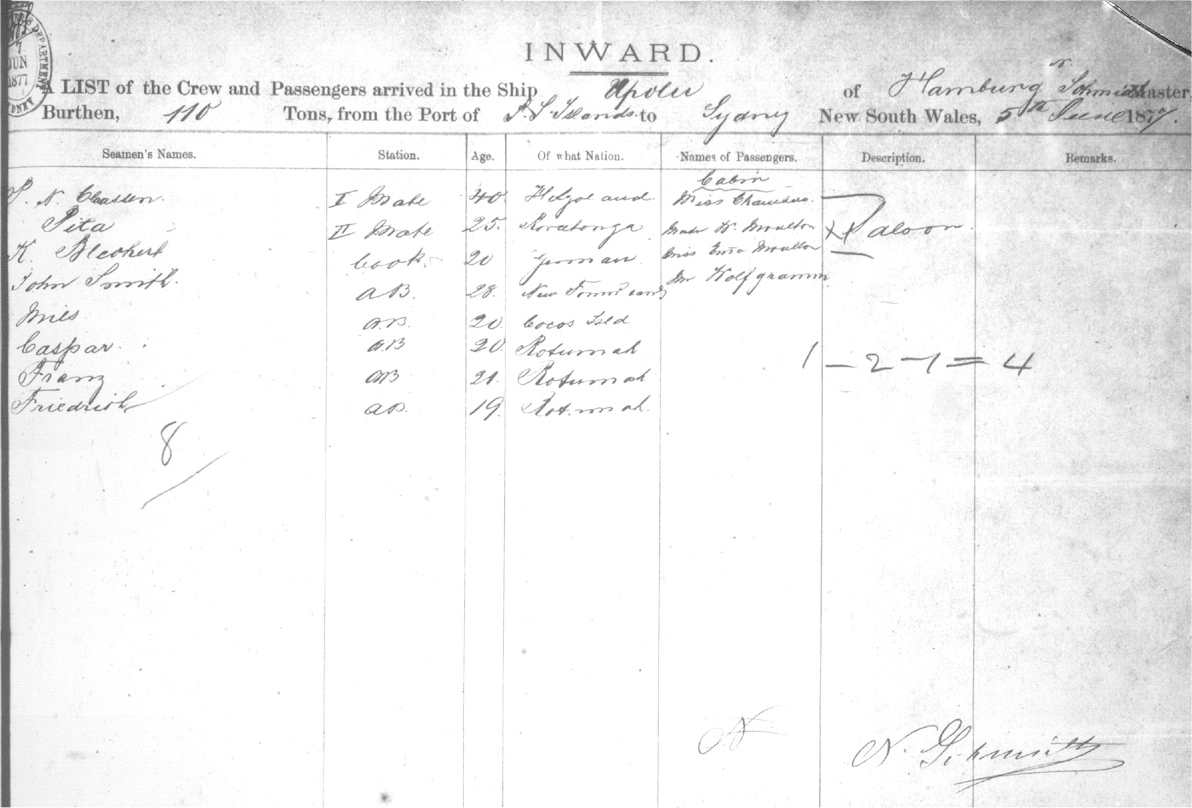 JUN
1877
SYDNEY
DEPARTMENT
INWARD.
A LIST of the Crew and Passengers arrived in the Ship Upolu of Hamburg N Schmidt Master,
Burthen, 110 Tons, from the Port of S. S. Islands to Sydney New South Wales, 5th June 1877.
Seamen's Names. Station. Age. Of what Nation. Names of Passengers. Description. Remarks.
Cabin
N. I Mate 40 Miss Chambers
Pita II Mate 25. Moulton Saloon
K. Blechert Cook. 20 German Miss Moulton
John Smith. AB. 28. Mr Wolfgramm
Miles AB. 20 Cocos Isld
Caspar. AB 20 Rotumah
1 – 2 – 1 = 4
Franz AB 21. Rotumah
Friedrich AB. 19. Rotumah.
8
N. Schmidt